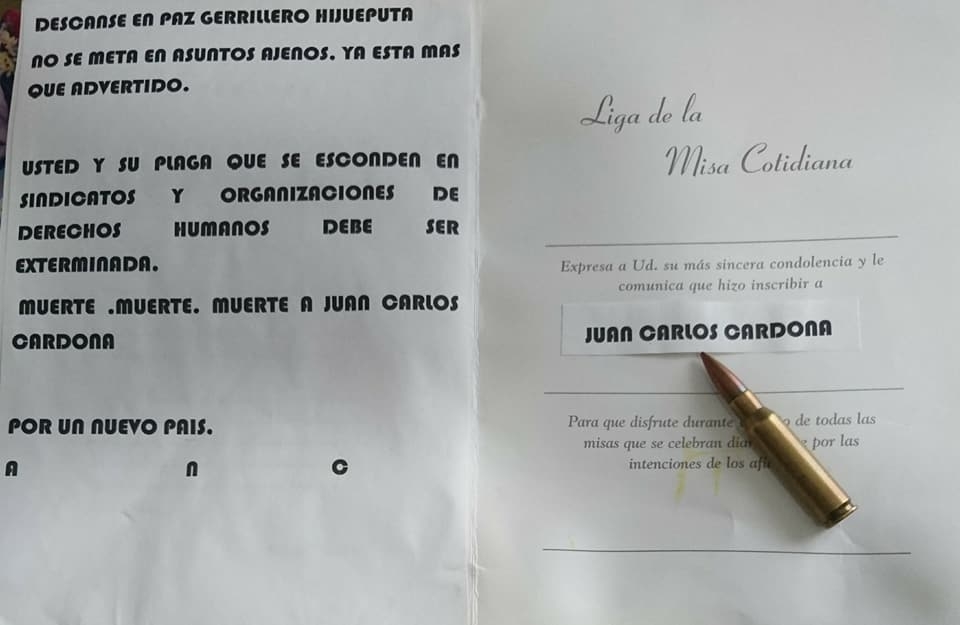 DESCANSE EN PAZ GERRILLERO HIJUEPUTA
NO SE META EN ASUNTOS AJENOS. YA ESTA MAS
QUE ADVERTIDO.
USTED Y SU PLAGA QUE SE ESCONDEN EN
SINDICATOS Y ORGANIZACIONES DE
DERECHOS HUMANOS DEBE SER
EXTERMINADA.
MUERTE .MUERTE. MUERTE A JUAN CARLOS
CARDONA
POR UN NUEVO PAIS.
A N C
Liga de la
Misa Cotidiana
Expresa a Ud. su más sincera condolencia y le
comunica que hizo inscribir a
JUAN CARLOS CARDONA
Para que disfrute durante de todas las
misas que se celebran por las
intenciones de los